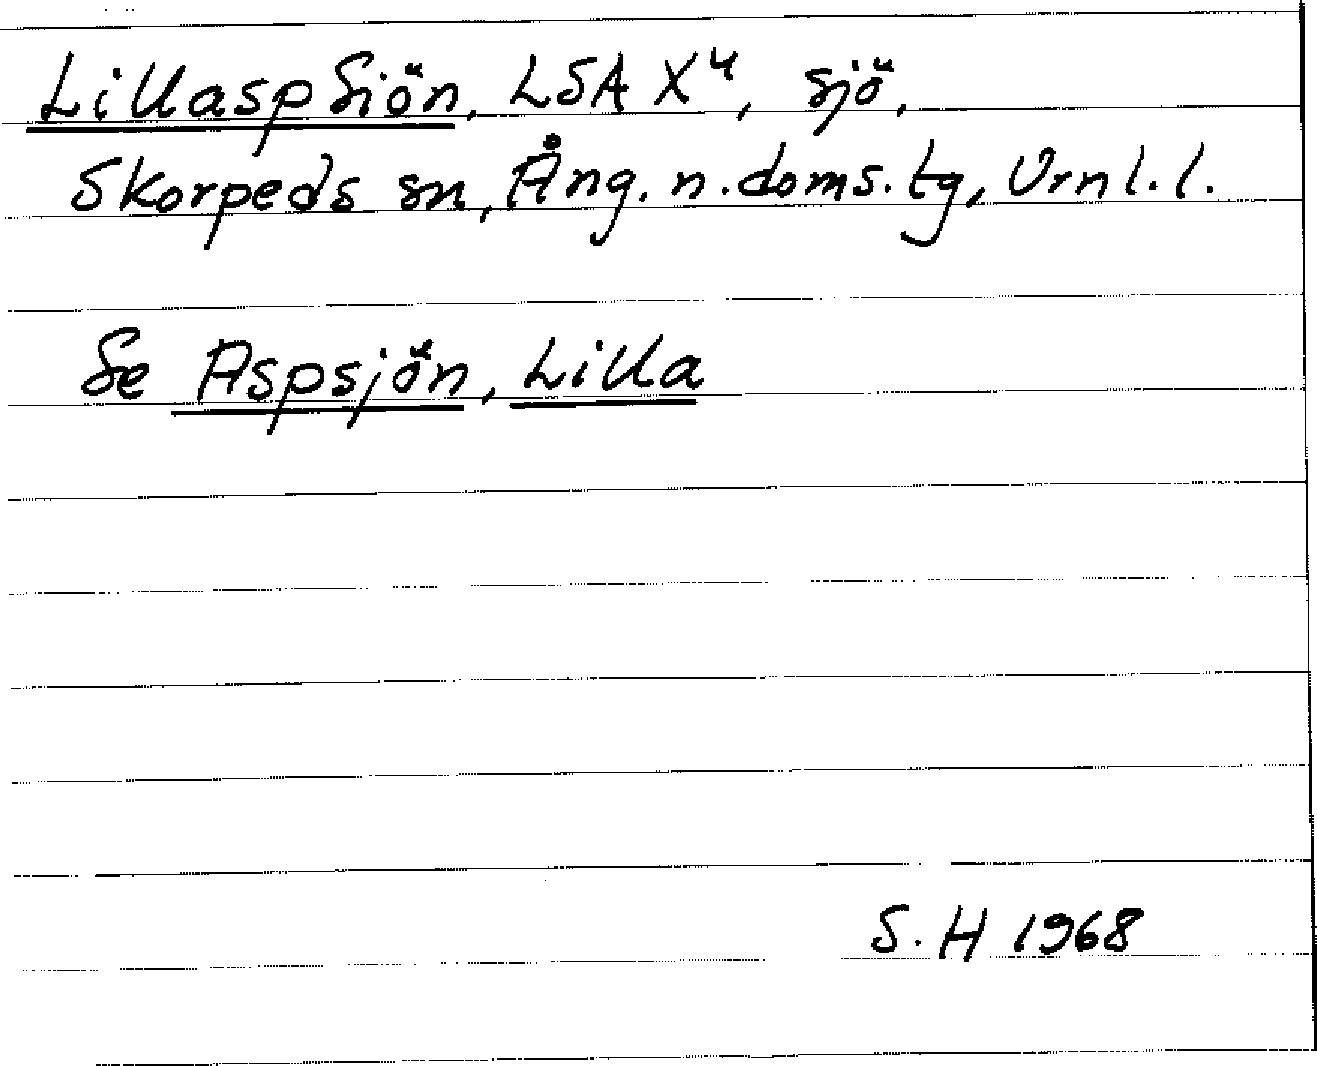 LillaspSiön, LSA X⁴, sjö,
Skorpeds sn, Ång. n. doms. tg, Vrnl. l.
Se Aspsjön, Lilla
S. H 1968